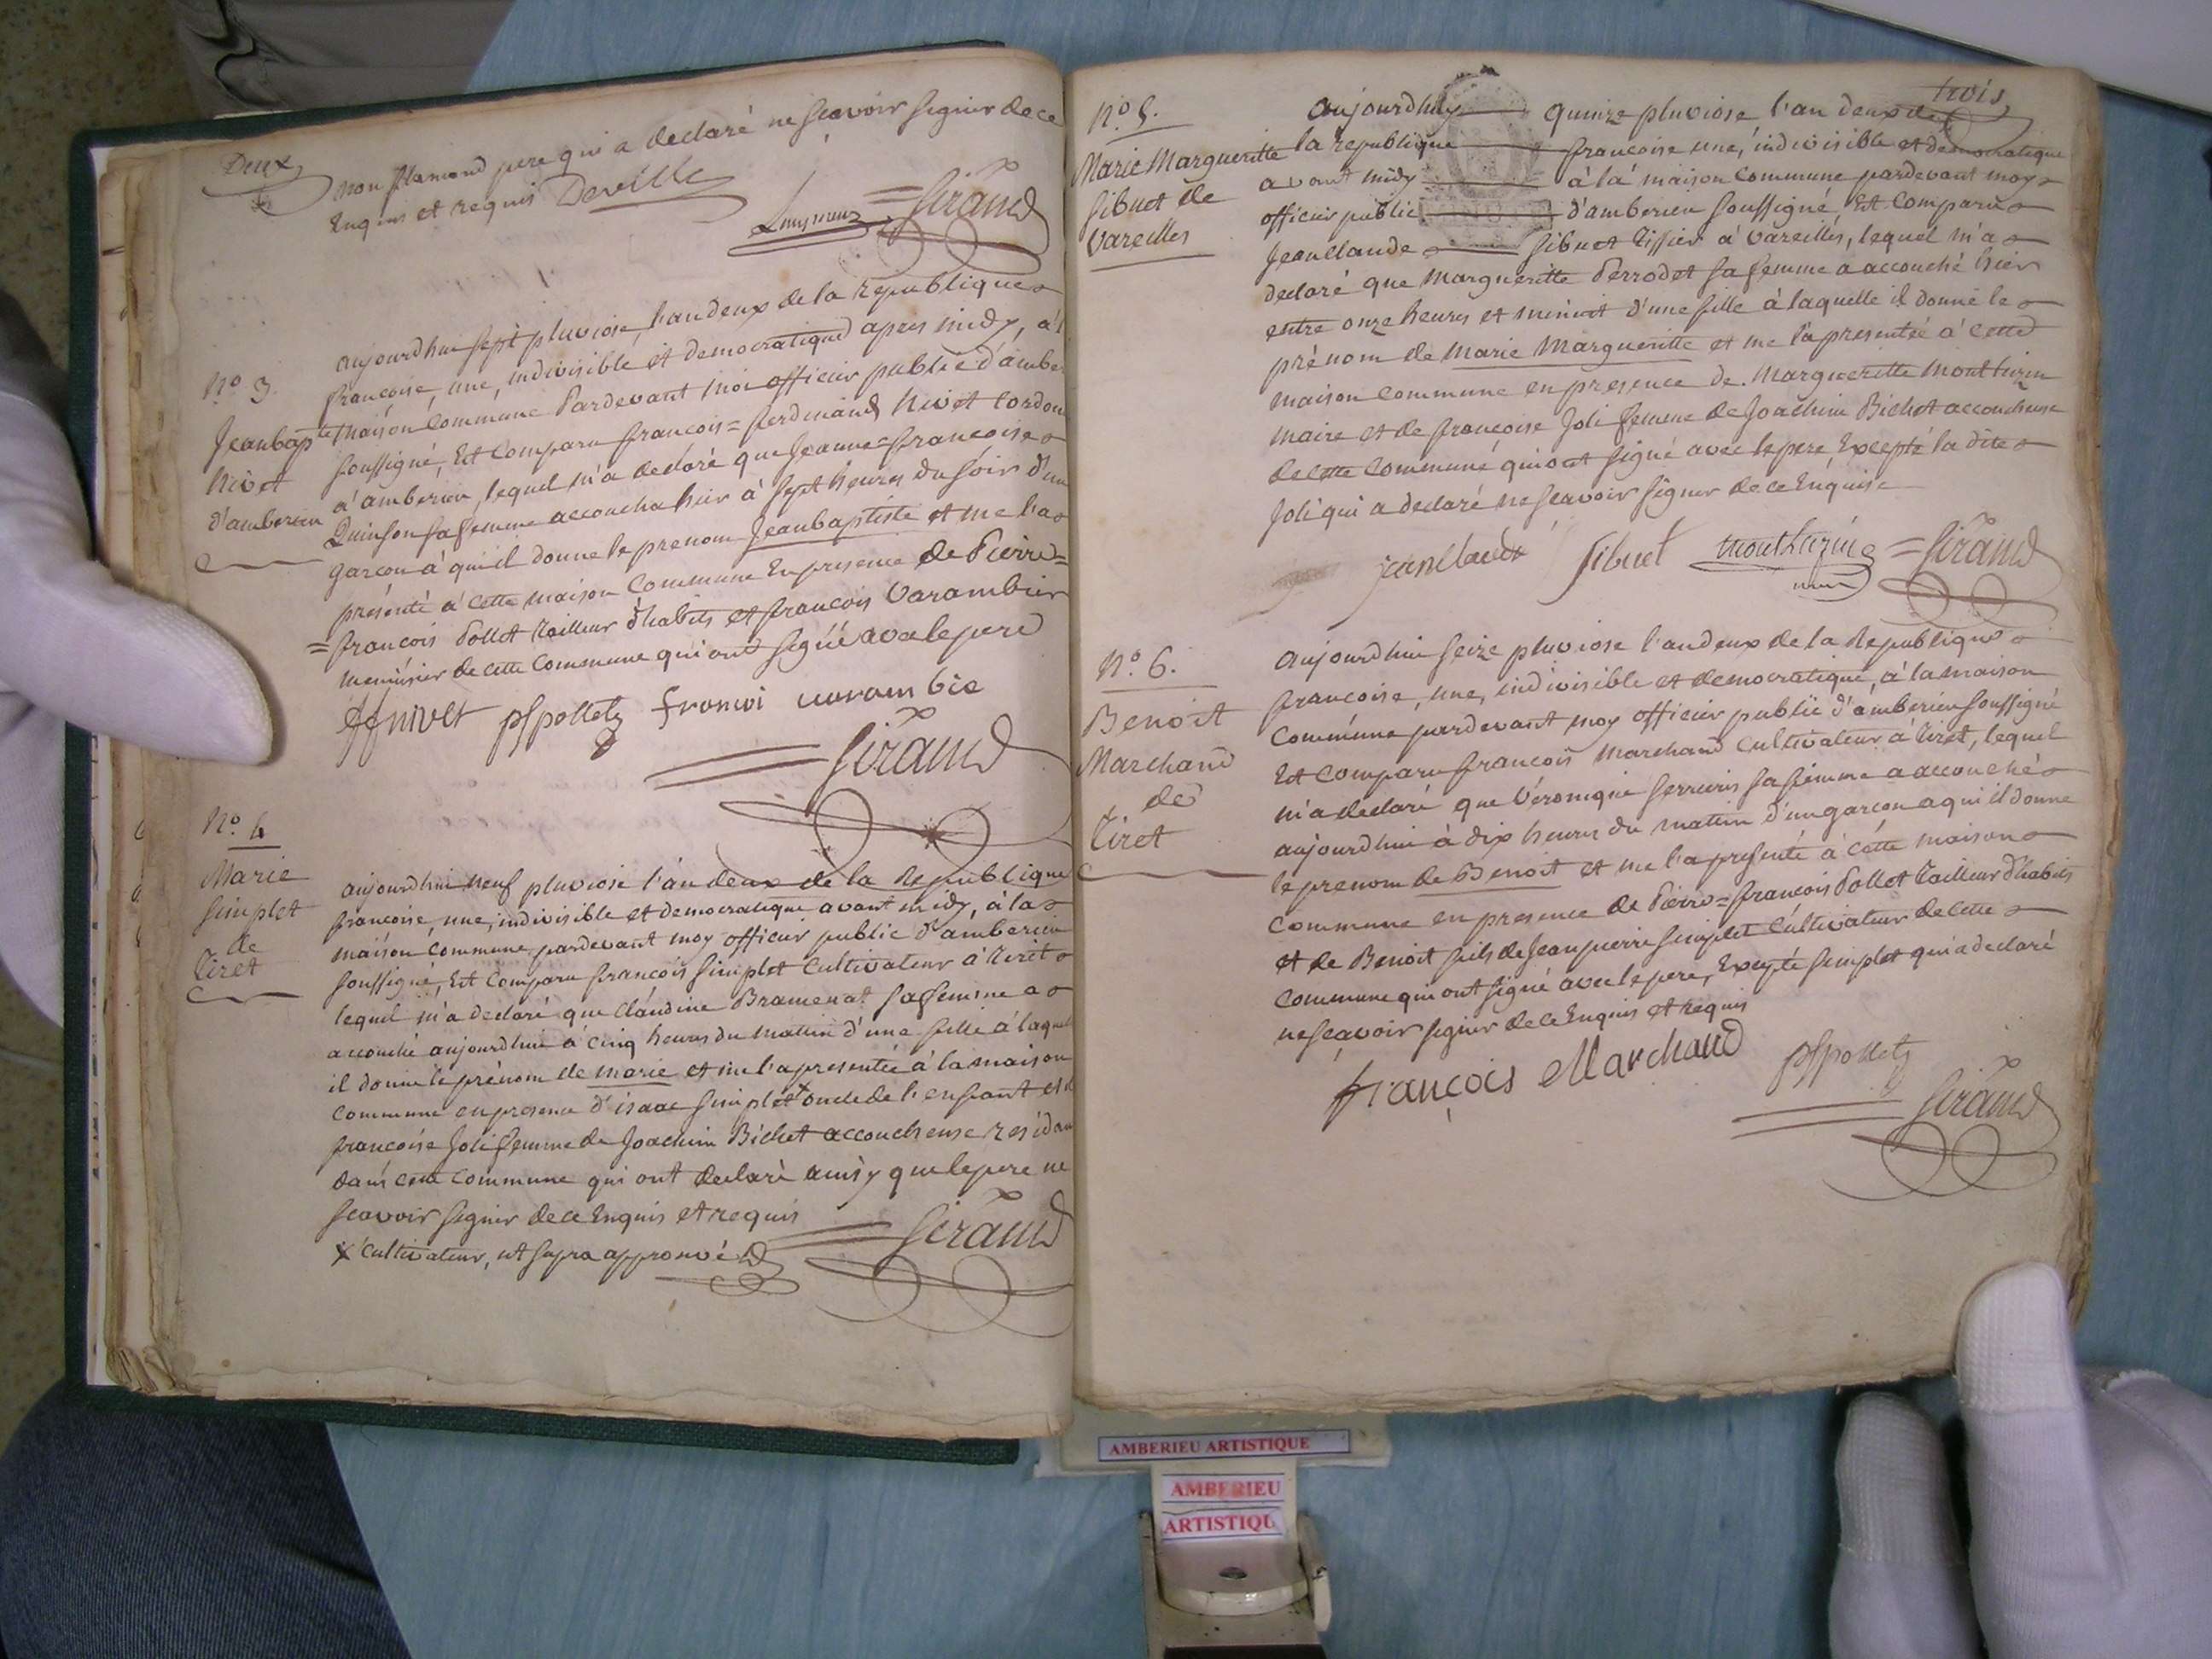 Deux
non flamand pere qui a declaré ne scavoir signer de ce
Enquis et requis Deville
Giraud
N.o 3.
Jeanbaptiste
Nivet
d'amberieu
aujourdhui sept pluviose, l'an deux de la republique
francoise, une, indivisible et democratique apres midy, à l
maison commune Pardevant moi officier public d'ambe
soussigné, Est comparu francois = ferdinand Nivet cordon
à amberieu, lequel m'a declaré que Jeanne = francoise
Quinson sa femme accoucha hier à sept heures du soir d'un
garcon à qui il donne le prenom Jeanbaptiste et me l'a
presenté à cette maison commune En presence de Pierre =
= francois Pollet Tailleur d'habits et francois Varambier
menuisier de cette commune qui ont signé avec le pere
ffnivet pfpollet francoi varambie
Giraud
N.o 4
Marie
Simplet
de
Tiret
aujourdhui neuf pluviose l'an deux de la Republique
francoise, une, indivisible et democratique avant midy, à la
maison commune pardevant moy officier public d'amberieu
soussigné, Est comparu francois Simplet Cultivateur à Tiret
lequel m'a declaré que Claudine Bramerat sa femme a
accouché aujourdhui à cinq heures du mattin d'une fille à laquel
il donne le prénom de marie et me l'a presentée à la maison
commune en presence d'isaac Simplet x oncle de l'enfant et d
francoise Joli femme de Joachim Bichet accoucheuse residan
dans cette commune qui ont declaré ainsy que le pere ne
scavoir signer de ce Enquis et requis
x cultivateur, ut supra approuvé
Giraud
trois
N.o 5.
Marie Margueritte
Sibuet de
Vareilles
aujourdhuy quinze pluviose l'an deux de
la republique francoise une, indivisible et democratique
avant midy à la maison commune pardevant moy
officier public d'amberieu soussigné Est comparu
Jean Claude Sibuet Tissier à Vareilles, lequel m'a
declaré que Margueritte Perrodet sa femme a accouché hier
entre onze heures et minuit d'une fille à laquelle il donne le
prénom de Marie Margueritte et me l'a presentée à cette
maison commune en presence de Margueritte Monthurin
maire et de francoise Joli femme de Joachim Bichet accoucheuse
de cette commune qui ont signé avec le pere Excepté la dite
Joli qui a declaré ne scavoir signer de ce Enquise
jean Claude Sibuet Monthurin
Giraud
N.o 6.
Benoit
Marchand
de
Tiret
aujourdhui seize pluviose l'an deux de la Republique
francoise, une, indivisible et democratique, à la maison
commune pardevant moy officier public d'amberieu soussigné
Est comparu francois Marchand cultivateur à Tiret, lequel
m'a declaré que Véronique Serruris sa femme a accouché
aujourdhui à dix heures du mattin d'un garcon a qui il donne
le prenom de Benoit et me l'a presenté à cette maison
commune en presence de Pierre = francois Pollet Tailleur d'habits
et de Benoit fils de Jean pierre Simplet Cultivateur de cette
commune qui ont signé avec le pere, Excepté Simplet qui a declaré
ne scavoir signer de ce Enquis et requis
françois Marchand pfpollet
Giraud
AMBERIEU ARTISTIQUE
AMBERIEU
ARTISTIQU